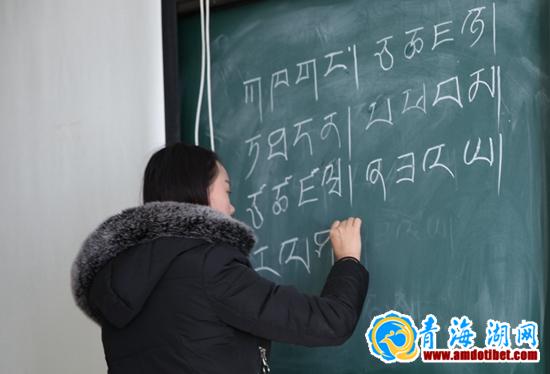 ཀ ཁ ག ང། ཅ ཆ ཇ ཉ།
ཏ ཐ ད ན། པ ཕ བ མ།
ཙ ཚ ཛ ཝ། ཞ ཟ འ ཡ།
ར ལ ཤ
青海湖网
www.amdotibet.com